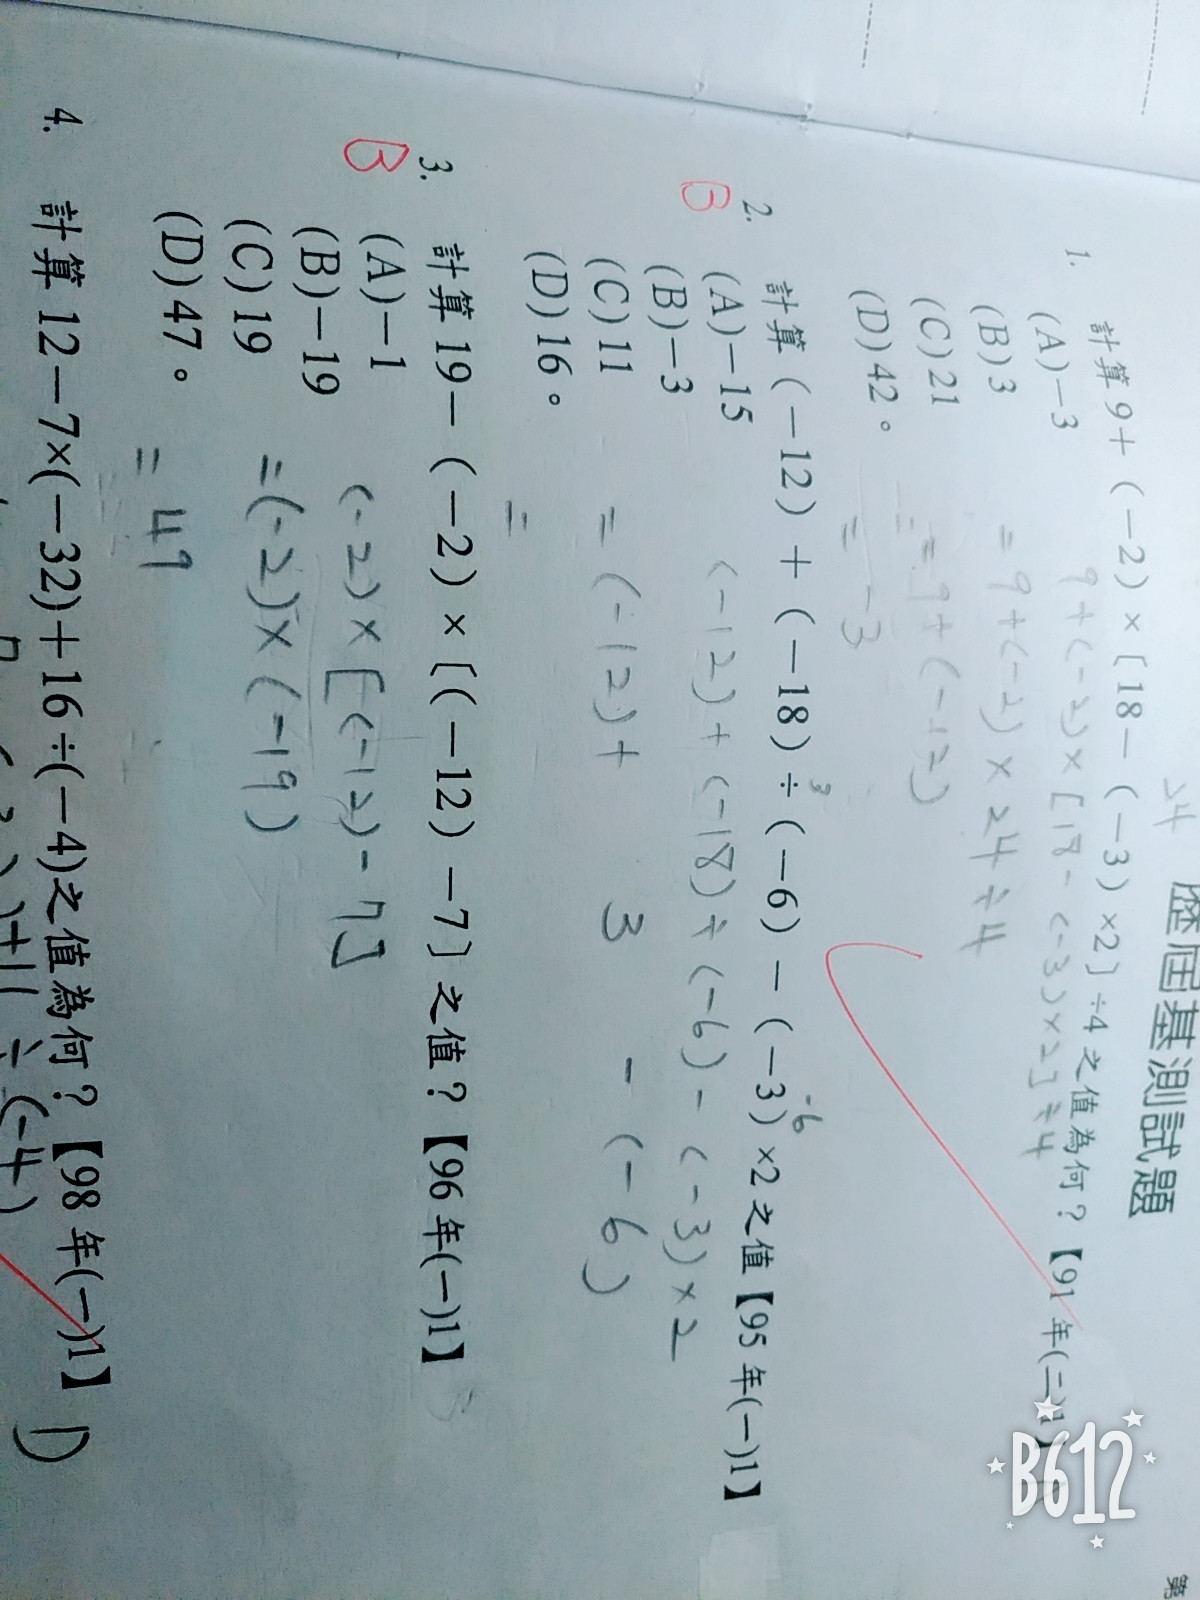 歷屆基測試題
24
1. 計算 9＋（－2）×〔18－（－3）×2〕÷4 之值為何？【91 年(二)1】
(A)－3
(B)3
(C)21
(D)42。
9+(-2)×[18-(-3)×2]÷4
=9+(-2)×24÷4
=9+(-12)
=-3
B 2. 計算（－12）＋（－18）÷（－6）－（－3）×2 之值【95 年(一)1】
3 -6
(A)－15
(B)－3
(C)11
(D)16。
(-12)+(-18)÷(-6)-(-3)×2
=(-12)+ 3 -(-6)
=
B 3. 計算 19－（－2）×〔（－12）－7〕之值？【96 年(一)1】
(A)－1
(B)－19
(C)19
(D)47。
(-2)×[(-12)-7]
=(-2)×(-19)
=49
4. 計算 12－7×(－32)＋16÷(－4)之值為何？【98 年(一)1】 D
÷(-4)
B612
第